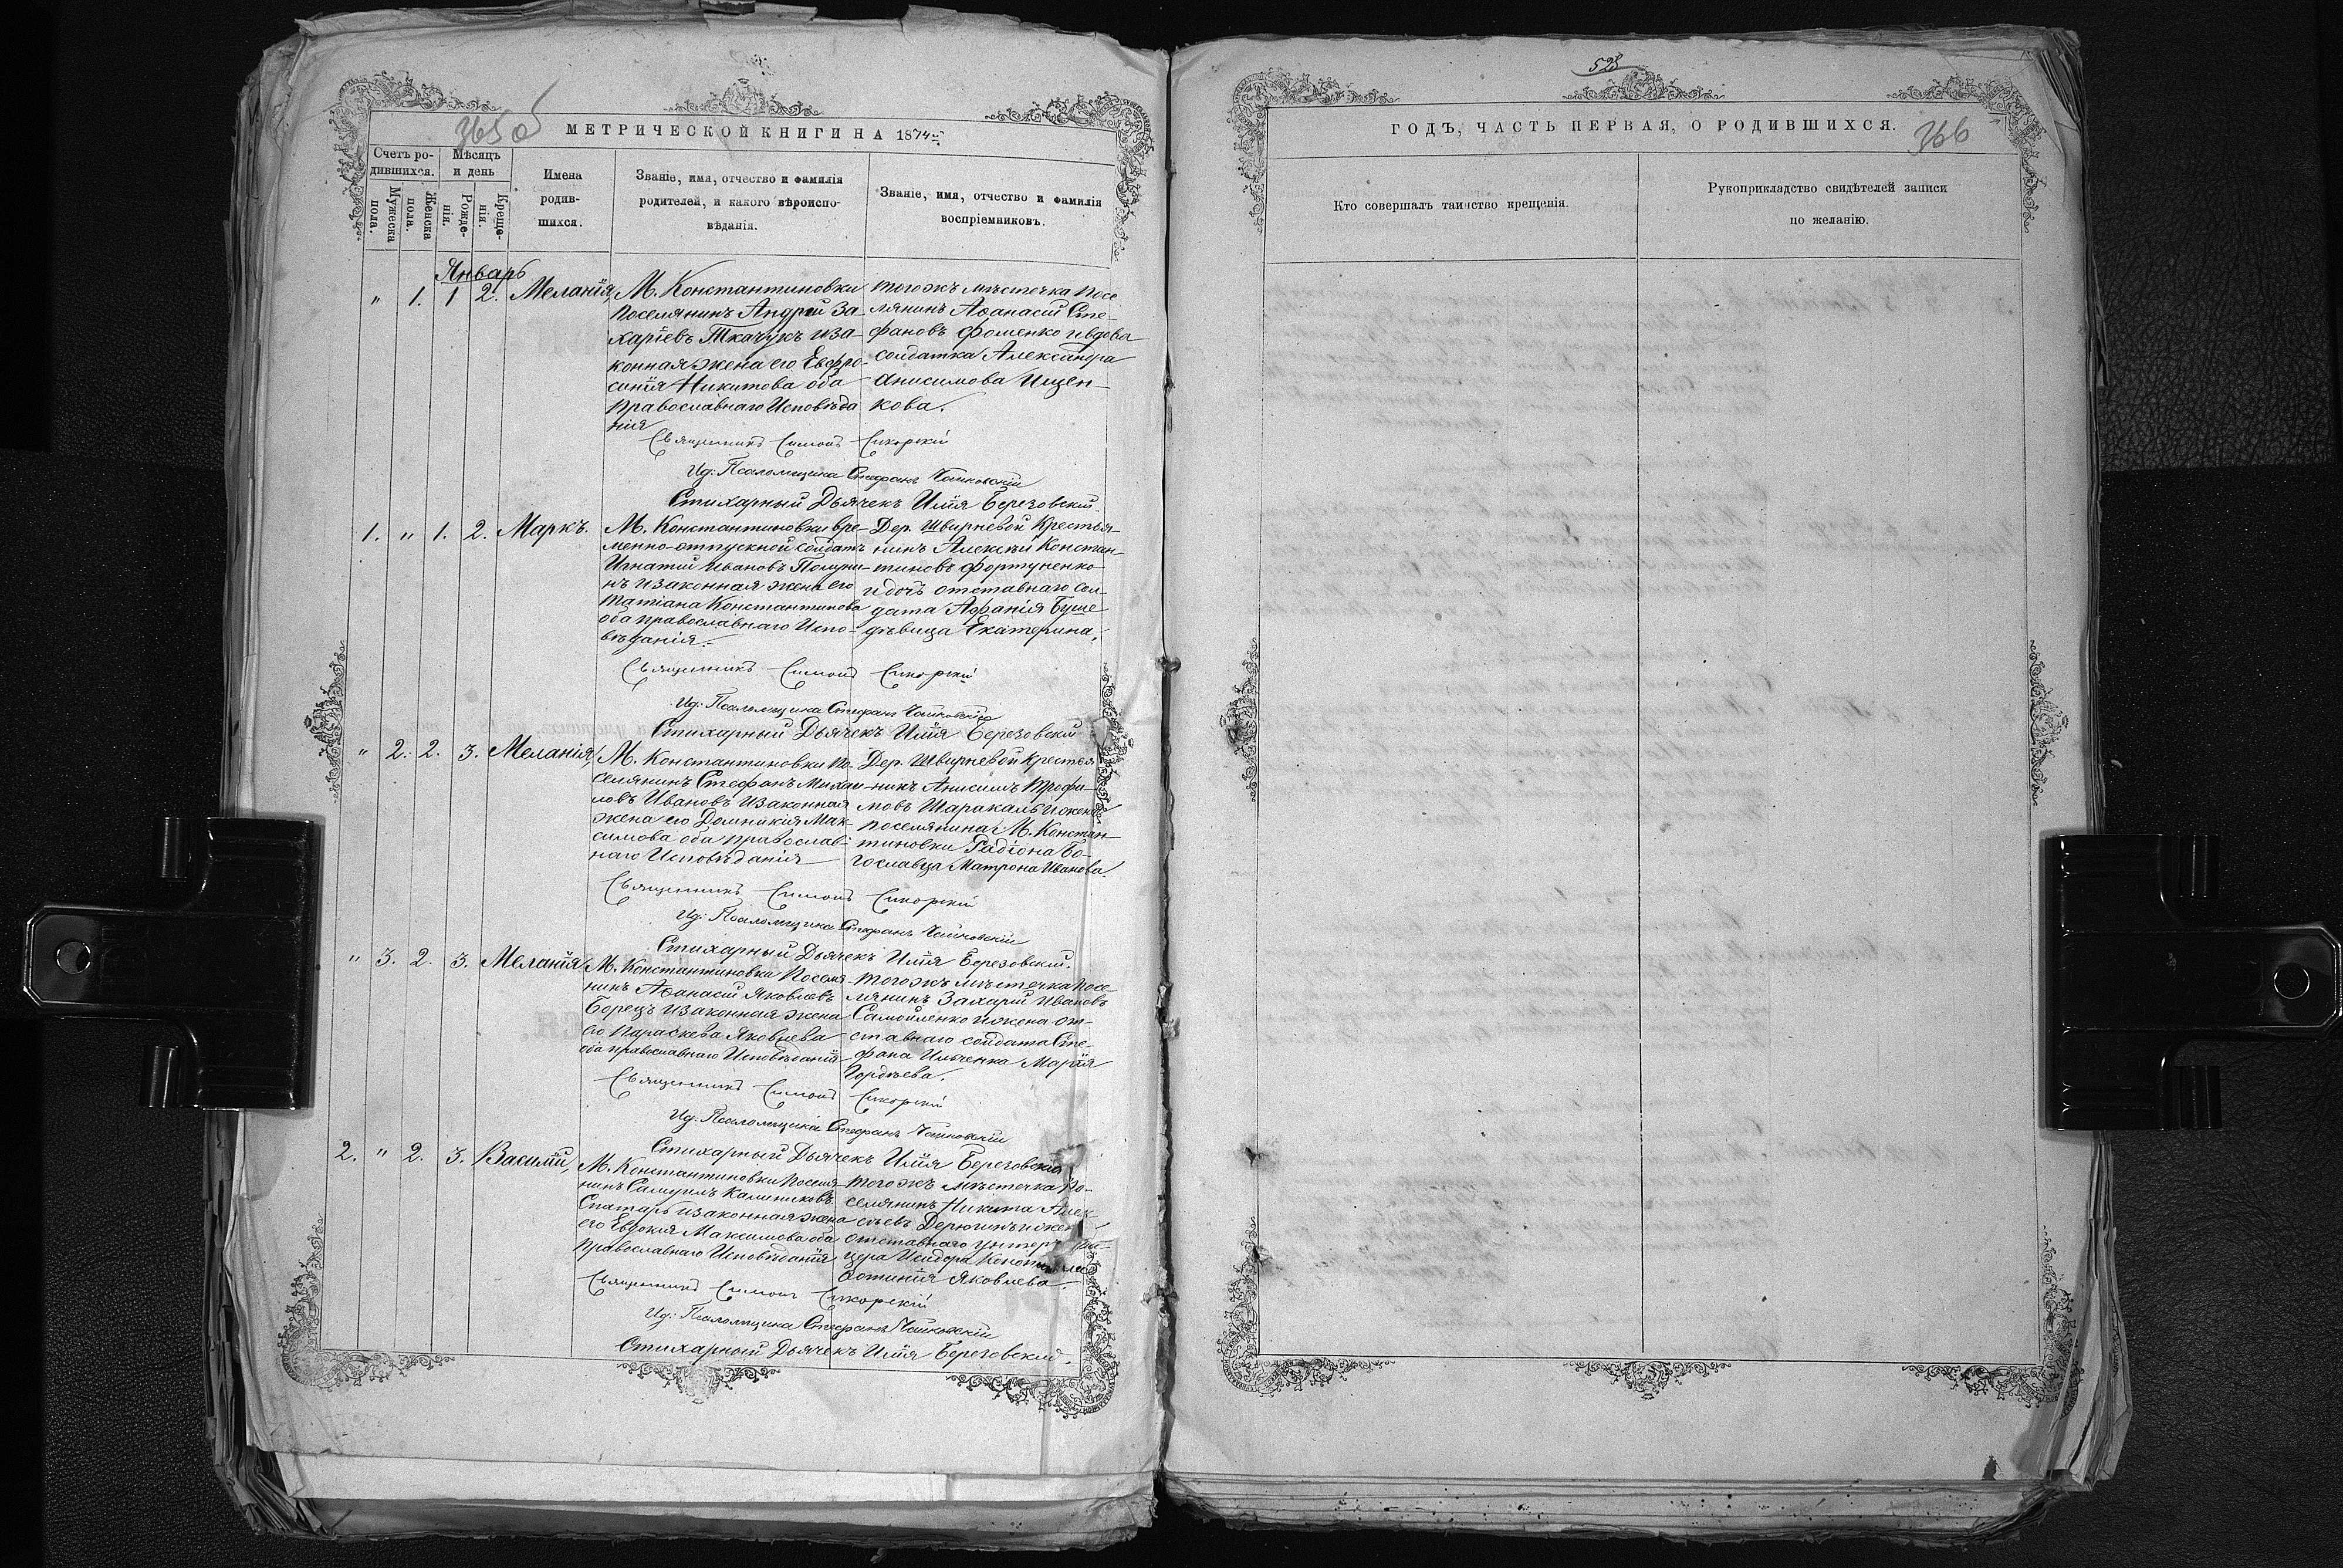 365 об
МЕТРИЧЕСКОЙ КНИГИ НА 1874й
Счетъ ро-
дившихся.
Мѣсяцъ
и день
Мужеска
пола.
Женска
пола.
Рожде-
нія.
Креще-
нія.
Имена
родив-
шихся.
Званіе, имя, отчество и фамилія
родителей, и какого вѣроиспо-
вѣданія.
Званіе, имя, отчество и фамилія
воспріемниковъ.
Январь
" 1. 1 2. Меланія,
М. Константиновки
Поселянинъ Андрій За-
харіевъ Ткачукъ иза-
конная жена его Евфро-
синія Никитова оба
Православнаго Исповѣда
нія
тогожъ мѣстечка Посе
лянинъ Аѳанасій Сте-
фановъ Фоменко и вдова
солдатка Александра
Анисимова Ищен-
кова.
Священникъ Симонъ Сикорскій
Ид: Псаломщика Стефанъ Чайковскій
Стихарный Дьячекъ Илія Березовскій.
1. " 1. 2. Маркъ.
М. Константиновки вре-
менно-отпускной солдатъ
Игнатій Ивановъ
нъ изаконная жена его
Татіана Константинова
оба православнаго Испо-
вѣданія.
Дер. Швирневой Крестья-
нинъ Алексѣй Констан-
тиновъ Фортуненко
и дочь отставнаго сол-
дата Буше
дѣвица Екатерина.
Священникъ Симонъ Сикорскій
Ид: Псаломщика Стефанъ Чайковскій
Стихарный Дьячекъ Илія Березовскій
" 2. 2. 3. Меланія,
М. Константиновки По-
селянинъ Стефанъ Михаи-
ловъ Ивановъ изаконная
жена его Домникія Мак-
симова оба православ-
наго Исповѣданія
Дер. Швирневой Крестья
нинъ Анисимъ Трофи-
мовъ Шаракаль и жена
поселянина М. Констан-
тиновки Радіона Бо-
гославца Матрона Иванова.
Священникъ Симонъ Сикорскій
Ид: Псаломщика Стефанъ Чайковскій
Стихарный Дьячекъ Илія Березовскій.
" 3. 2. 3. Меланія
М. Константиновки Поселя-
нинъ Аѳанасій Яковлевъ
Борецъ изаконная жена
его Параскева Яковлева
оба православнаго Исповѣданія
тогожъ мѣстечка Посе-
лянинъ Захарій Ивановъ
Самойленко и жена от-
ставнаго солдата Сте-
фана Ильченка Марія
Гордѣева.
Священникъ Симонъ Сикорскій
Ид: Псаломщика Стефанъ Чайковскій
Стихарный Дьячекъ Илія Березовскій
2. " 2. 3. Василій,
М. Константиновки Поселя-
нинъ Самуилъ Калиниковъ
Спатарь изаконная жена
его Евдокія Максимова оба
Православнаго Исповѣданія
тогожъ мѣстечка По-
селянинъ Никита Алек-
сѣевъ Дерюгинъ и жена
отставнаго унтеръ
цера Исидора
Фотинія Яковлева.
Священникъ Симонъ Сикорскій
Ид: Псаломщика Стефанъ Чайковскій
Стихарный Дьячекъ Илія Березовскій.
528
ГОДЪ, ЧАСТЬ ПЕРВАЯ, О РОДИВШИХСЯ.
366
Кто совершалъ таинство крещенія.
Рукоприкладство свидѣтелей записи
по желанію.